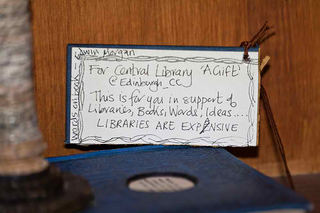 Edwin Morgan
For Central Library 'A Gift'
@Edinburgh_CC
This is for you in support of
Libraries, Books, Words, Ideas....
LIBRARIES ARE EXPANSIVE